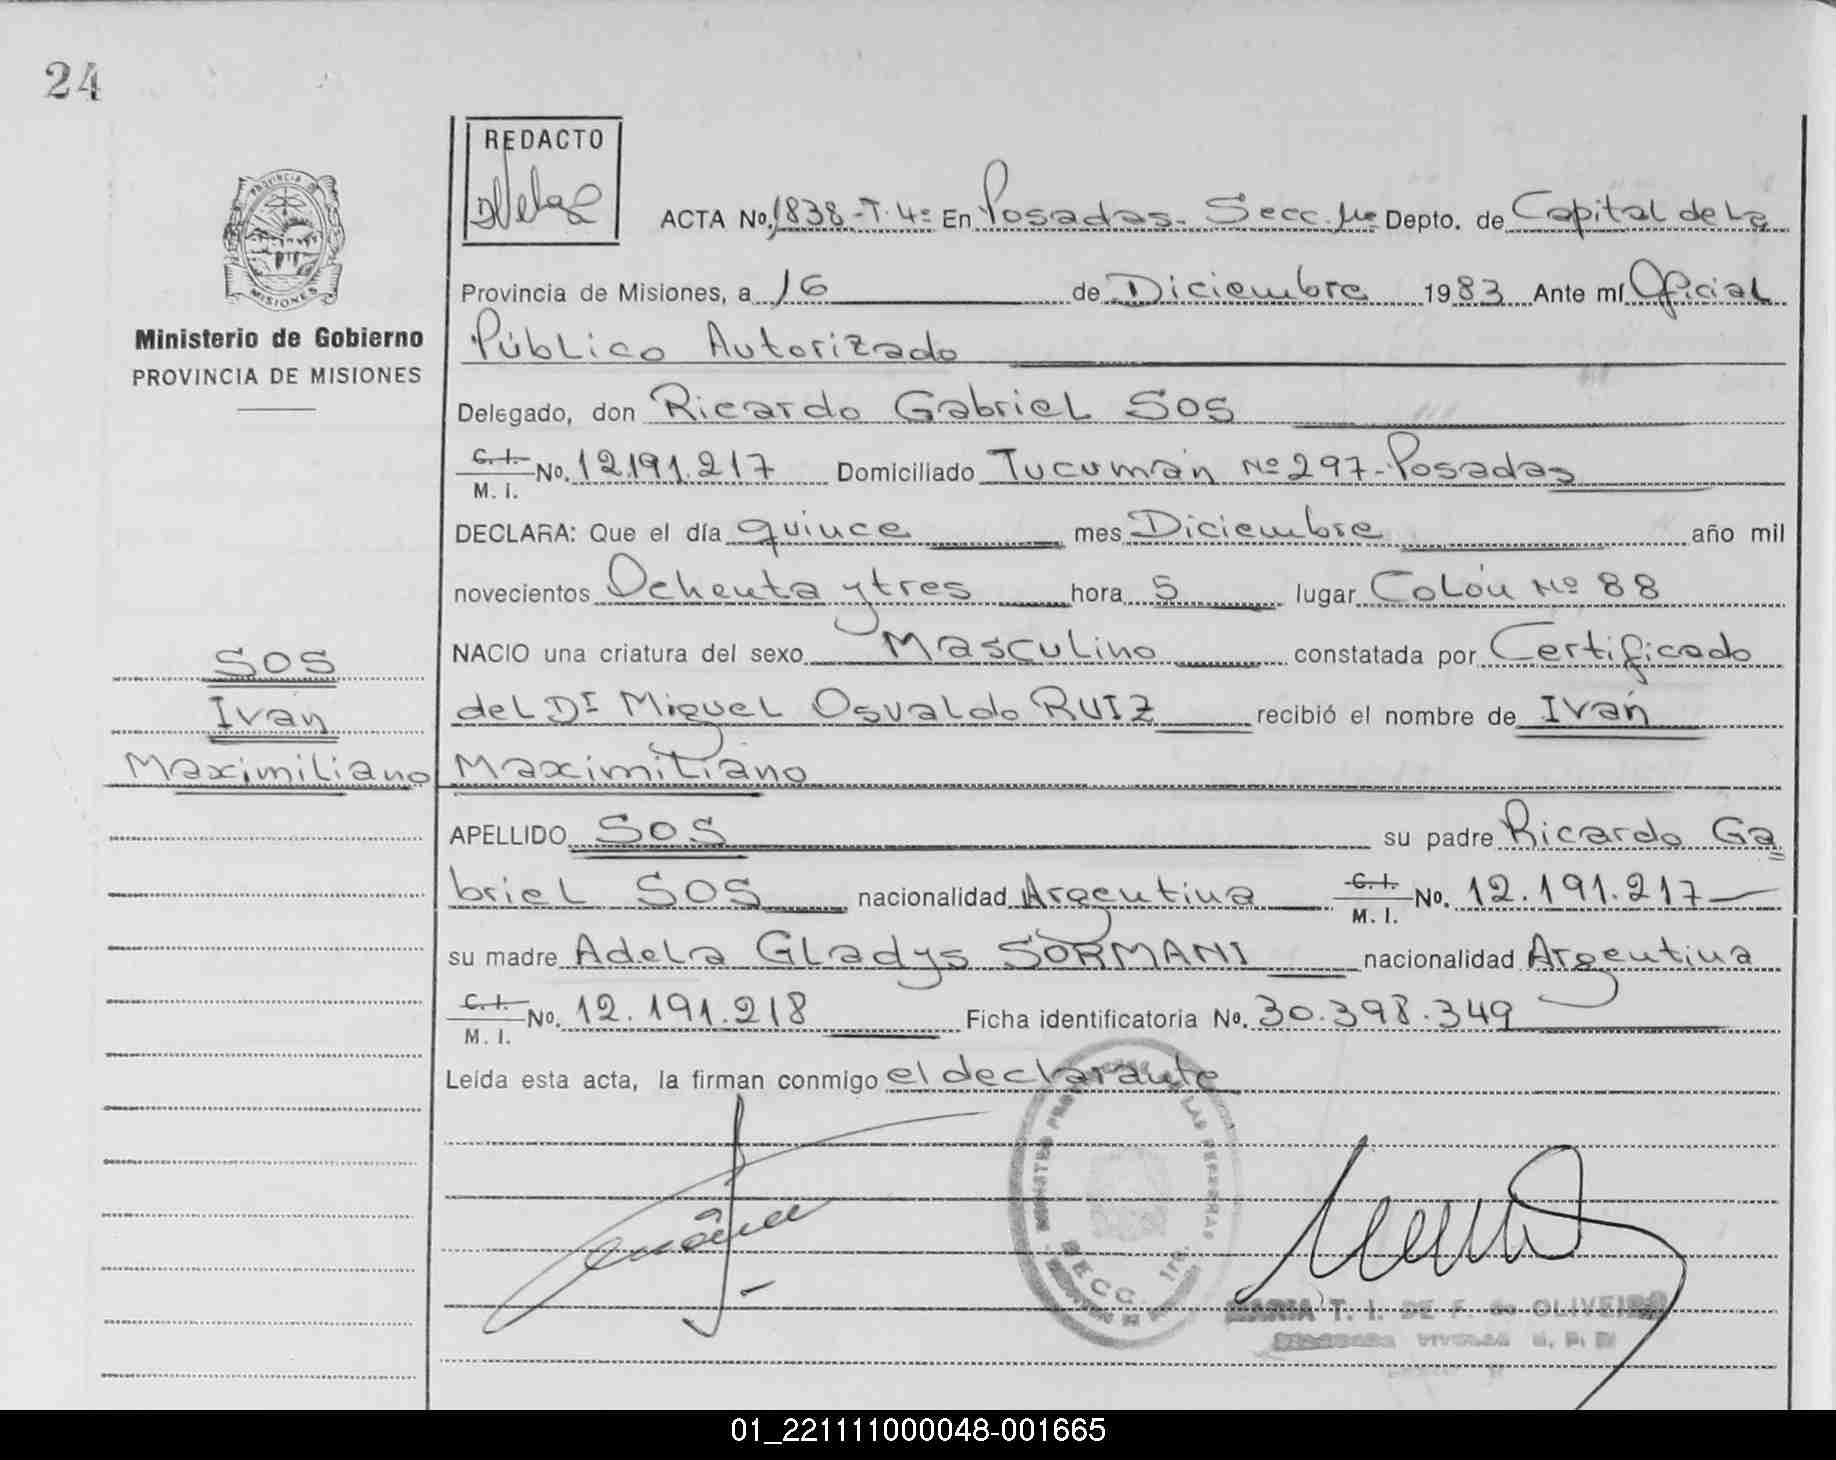 24
REDACTO
ACTA No. 1838-T.4º En Posadas. Secc. 1ra Depto. de Capital de la
Provincia de Misiones, a 16 de Diciembre 1983 Ante mí Oficial
Público Autorizado
Ministerio de Gobierno
PROVINCIA DE MISIONES
Delegado, don Ricardo Gabriel SOS
C. I.
M. I. No. 12.191.217 Domiciliado Tucumán Nº 297-Posadas
DECLARA: Que el día quince mes Diciembre año mil
novecientos Ochenta y tres hora 5 lugar Colón Nº 88
NACIO una criatura del sexo Masculino constatada por Certificado
del Dr Miguel Osvaldo RUIZ recibió el nombre de Iván
Maximiliano
SOS
Ivan
Maximiliano
APELLIDO SOS su padre Ricardo Ga
briel SOS nacionalidad Argentina C. I. M. I. No. 12.191.217
su madre Adela Gladys SORMANI nacionalidad Argentina
C. I.
M. I. No. 12.191.218 Ficha identificatoria No. 30.398.349
Leída esta acta, la firman conmigo el declarante
SECC. 1ra.
MARIA T. I. DE F. de OLIVEIRA
01_221111000048-001665